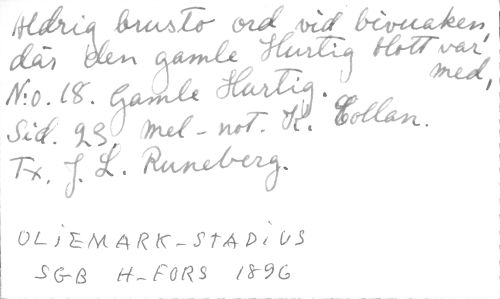 Aldrig brusto ord vid bivuaken,
där den gamle Hurtig blott var
med,
N:o. 18. Gamle Hurtig.
Sid. 23, mel-not. K. Collan.
Tx. J. L. Runeberg.
OLiEMARK-STADiUS
SGB H-FORS 1896